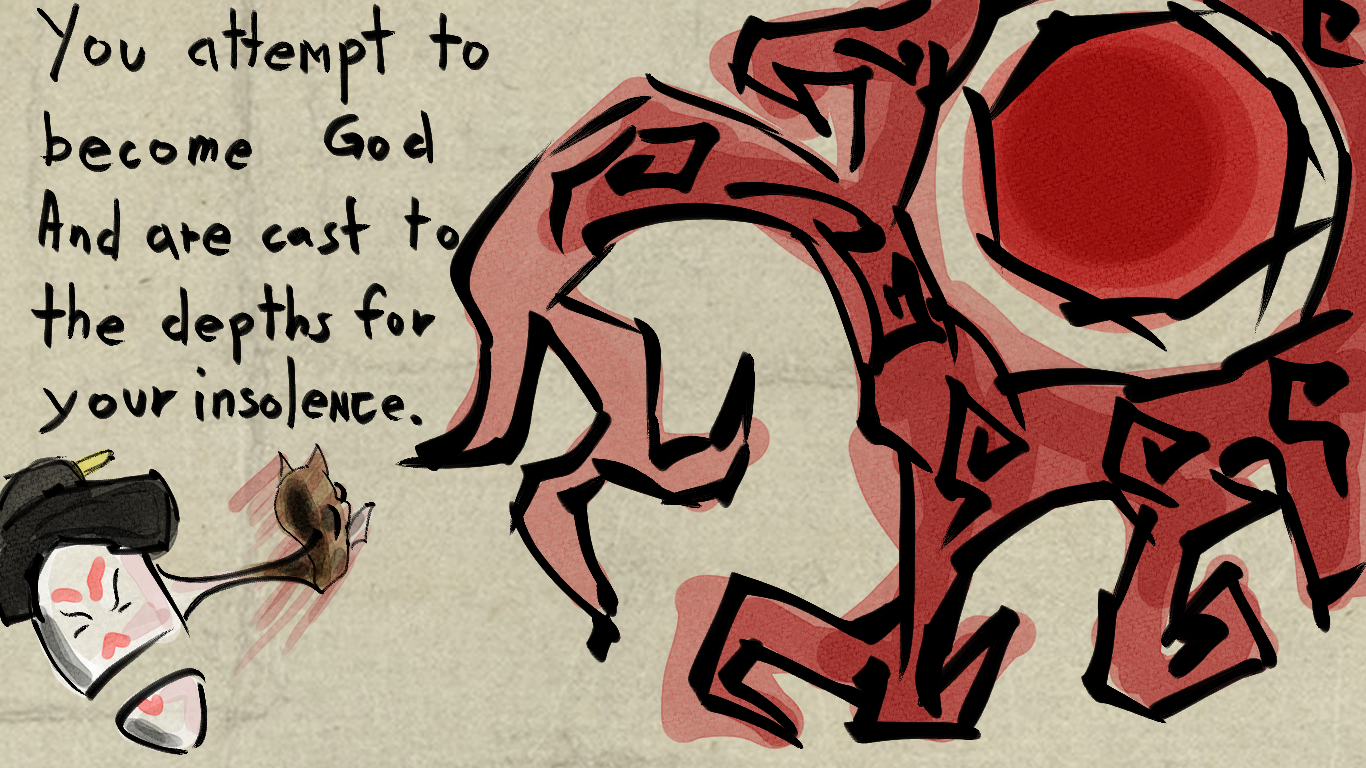 You attempt to
become God
And are cast to
the depths for
your insolence.